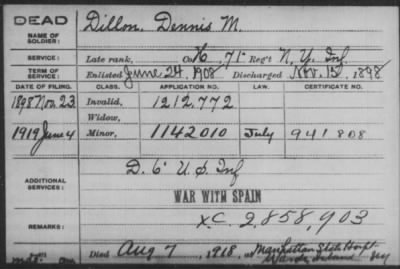 DEAD
NAME OF SOLDIER: Dillon, Dennis M.
SERVICE: Late rank, Co K, 71 Reg't N.Y. Inf
TERM OF SERVICE: Enlisted June 24, 1908 Discharged Nov. 15, 1898
DATE OF FILING. CLASS. APPLICATION NO. LAW. CERTIFICATE NO.
1898 Nov. 23 Invalid, 1212,772
Widow,
1919 June 4 Minor, 1142010 July 941808
ADDITIONAL SERVICES: D. 6" U.S. Inf
WAR WITH SPAIN
REMARKS: XC 2,858,903
Died Aug 7, 1918, at Manhattan State Hospt
Wards Island NY